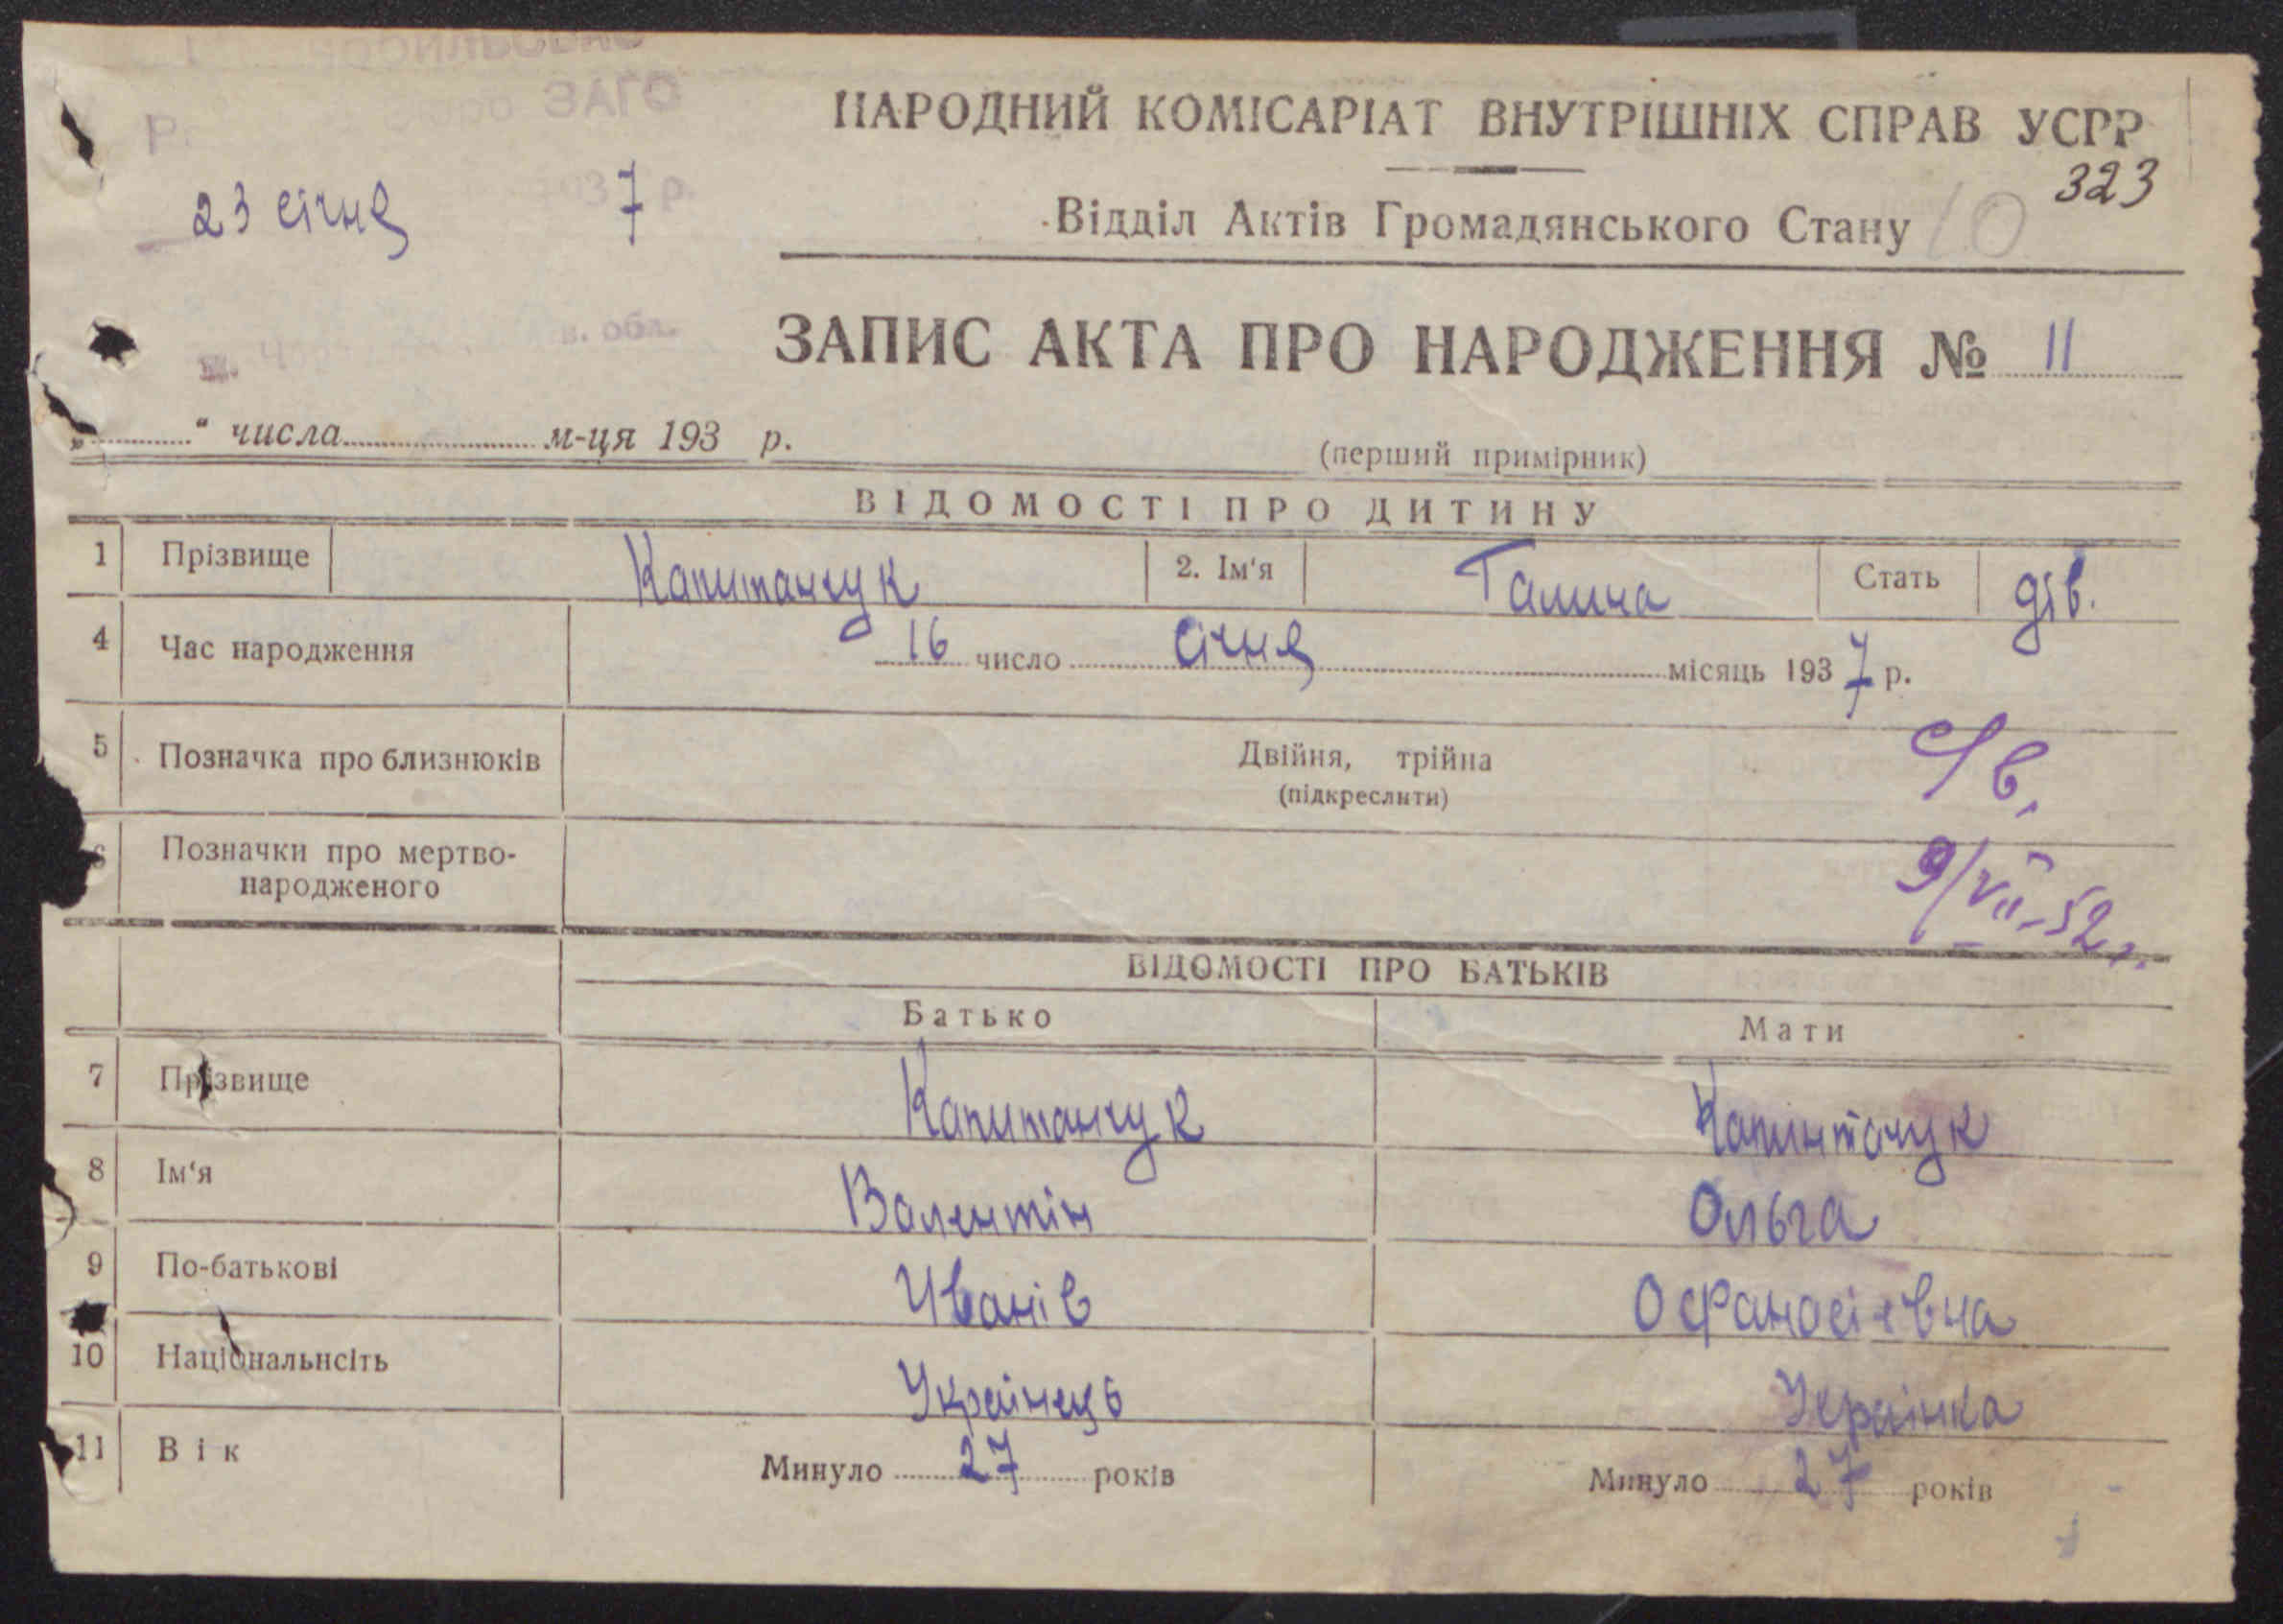 ЗАГС
НАРОДНИЙ КОМІСАРІАТ ВНУТРІШНІХ СПРАВ УСРР
323
23 січня 7 р.
Відділ Актів Громадянського Стану 10
в. обл.
ЗАПИС АКТА ПРО НАРОДЖЕННЯ № 11
„ “ числа м-ця 193 р.
(перший примірник)
ВІДОМОСТІ ПРО ДИТИНУ
1 Прізвище Капитанчук 2. Ім'я Галина Стать дів.
4 Час народження 16 число січня місяць 1937 р.
5 Позначка про близнюків Двійня, трійна
(підкреслити)
6 Позначки про мертво-
народженого
9/VII-52 г.
ВІДОМОСТІ ПРО БАТЬКІВ
Батько Мати
7 Прізвище Капитанчук Капинтачук
8 Ім'я Валентін Ольга
9 По-батькові Иванів Офанасієвна
10 Національнсіть Украінець Украінка
11 Вік Минуло 27 років Минуло 27 років